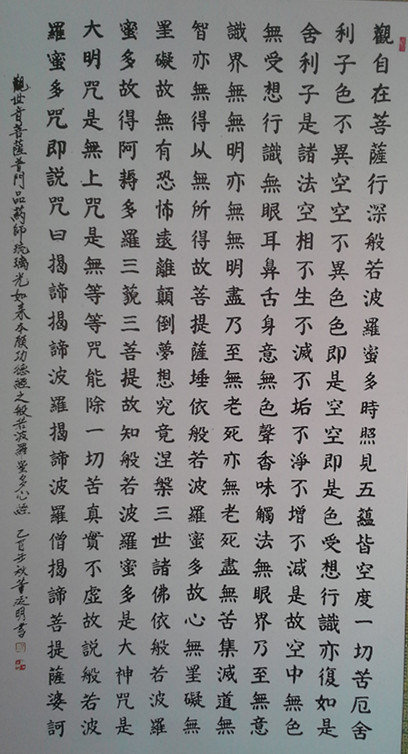 觀自在菩薩行深般若波羅蜜多時照見五蘊皆空度一切苦厄舍
利子色不異空空不異色色即是空空即是色受想行識亦復如是
舍利子是諸法空相不生不滅不垢不淨不增不減是故空中無色
無受想行識無眼耳鼻舌身意無色聲香味觸法無眼界乃至無意
識界無無明亦無無明盡乃至無老死亦無老死盡無苦集滅道無
智亦無得以無所得故菩提薩埵依般若波羅蜜多故心無罣礙無
罣礙故無有恐怖遠離顛倒夢想究竟涅槃三世諸佛依般若波羅
蜜多故得阿耨多羅三藐三菩提故知般若波羅蜜多是大神咒是
大明咒是無上咒是無等等咒能除一切苦真實不虛故說般若波
羅蜜多咒即說咒曰揭諦揭諦波羅揭諦波羅僧揭諦菩提薩婆訶
觀世音菩薩普門品藥師琉璃光如來本願功德經之般若波羅蜜多心經 乙酉 秋董 明書